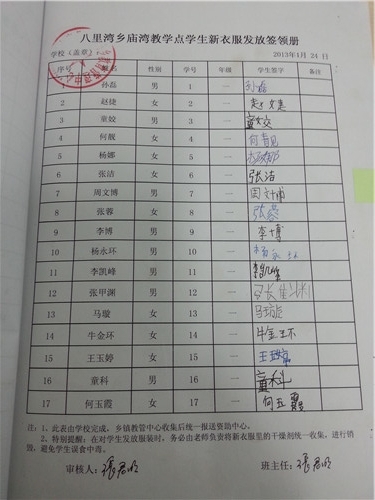 八里湾乡庙湾教学点学生新衣服发放签领册
学校(盖章) 2013年1月24日
序号 姓名 性别 学号 年级 学生签字 备注
1 孙磊 男 1 一 孙磊
2 赵捷 女 2 一 赵捷
3 童姣 男 3 一 童姣
4 何靓 女 4 一 何靓
5 杨娜 女 5 一 杨娜
6 张洁 女 6 一 张洁
7 周文博 男 7 一 周文博
8 张蓉 女 8 一 张蓉
9 李博 男 9 一 李博
10 杨永环 男 10 一 杨永环
11 李凯峰 男 11 一 李凯峰
12 张甲渊 男 12 一 张甲渊
13 马璇 女 13 一 马璇
14 牛金环 女 14 一 牛金环
15 王玉婷 女 15 一 王玉婷
16 童科 男 16 一 童科
17 何玉霞 女 17 一 何玉霞
注:1、此表由学校完成,乡镇教管中心收集后统一报送资助中心。
2、特别提醒:在对学生发放服装时,务必由老师负责将新衣服里的干燥剂统一收集,进行销
毁,避免学生误食中毒。
审核人: 班主任: